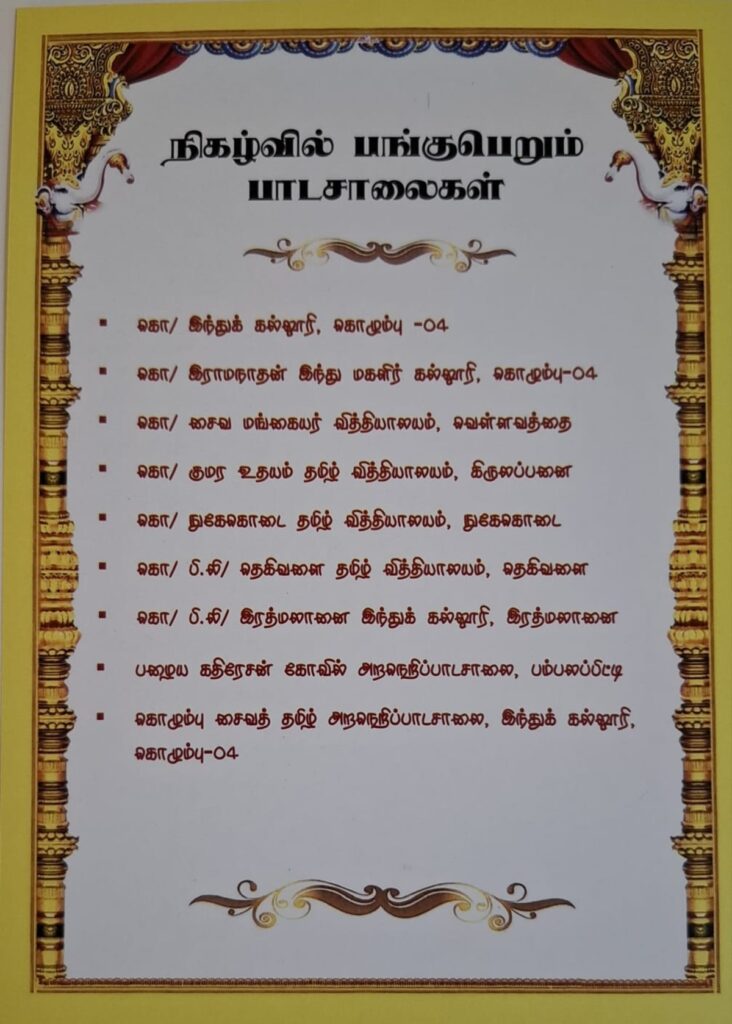 நிகழ்வில் பங்குபெறும்
பாடசாலைகள்
▪ கொ/ இந்துக் கல்லூரி, கொழும்பு -04
▪ கொ/ இராமநாதன் இந்து மகளிர் கல்லூரி, கொழும்பு-04
▪ கொ/ சைவ மங்கையர் வித்தியாலயம், வெள்ளவத்தை
▪ கொ/ குமர உதயம் தமிழ் வித்தியாலயம், கிருலப்பனை
▪ கொ/ நுகேகொடை தமிழ் வித்தியாலயம், நுகேகொடை
▪ கொ/ பி.லி/ தெகிவளை தமிழ் வித்தியாலயம், தெகிவளை
▪ கொ/ பி.லி/ இரத்மலானை இந்துக் கல்லூரி, இரத்மலானை
▪ பழைய கதிரேசன் கோவில் அறநெறிப்பாடசாலை, பம்பலப்பிட்டி
▪ கொழும்பு சைவத் தமிழ் அறநெறிப்பாடசாலை, இந்துக் கல்லூரி,
கொழும்பு-04